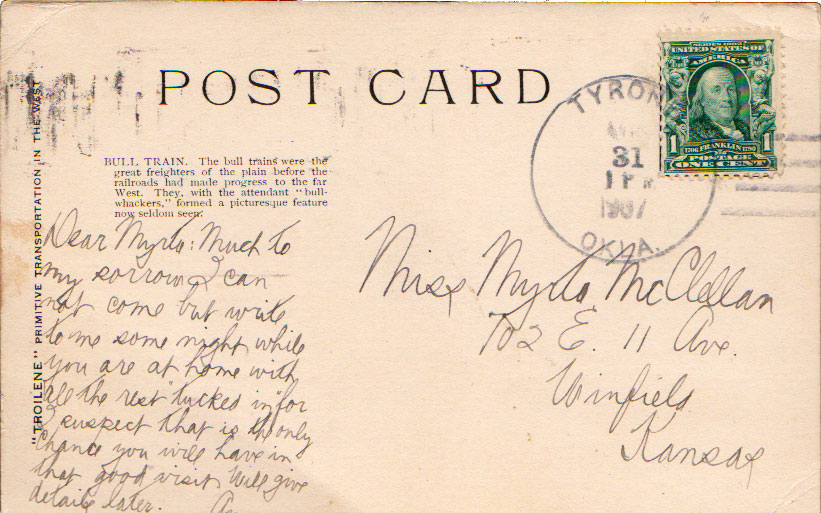 POST CARD
"TROILENE" PRIMITIVE TRANSPORTATION IN THE WEST
BULL TRAIN. The bull trains were the
great freighters of the plain before the
railroads had made progress to the far
West. They, with the attendant "bull-
whackers," formed a picturesque feature
now seldom seen.
SERIES 1902
UNITED STATES OF
AMERICA
1 1706 FRANKLIN 1790 1
POSTAGE
ONE CENT
TYRON
31
1 P
1907
OKLA.
Dear Myrto: Much to
my sorrow I can
not come but write
to me some night while
you are at home with
all the rest "tucked in" for
I suspect that is the only
chance you will have in
that good visit. Will give
details later.
Miss Myrto McClellan
702 E. 11 Ave.
Winfield
Kansas